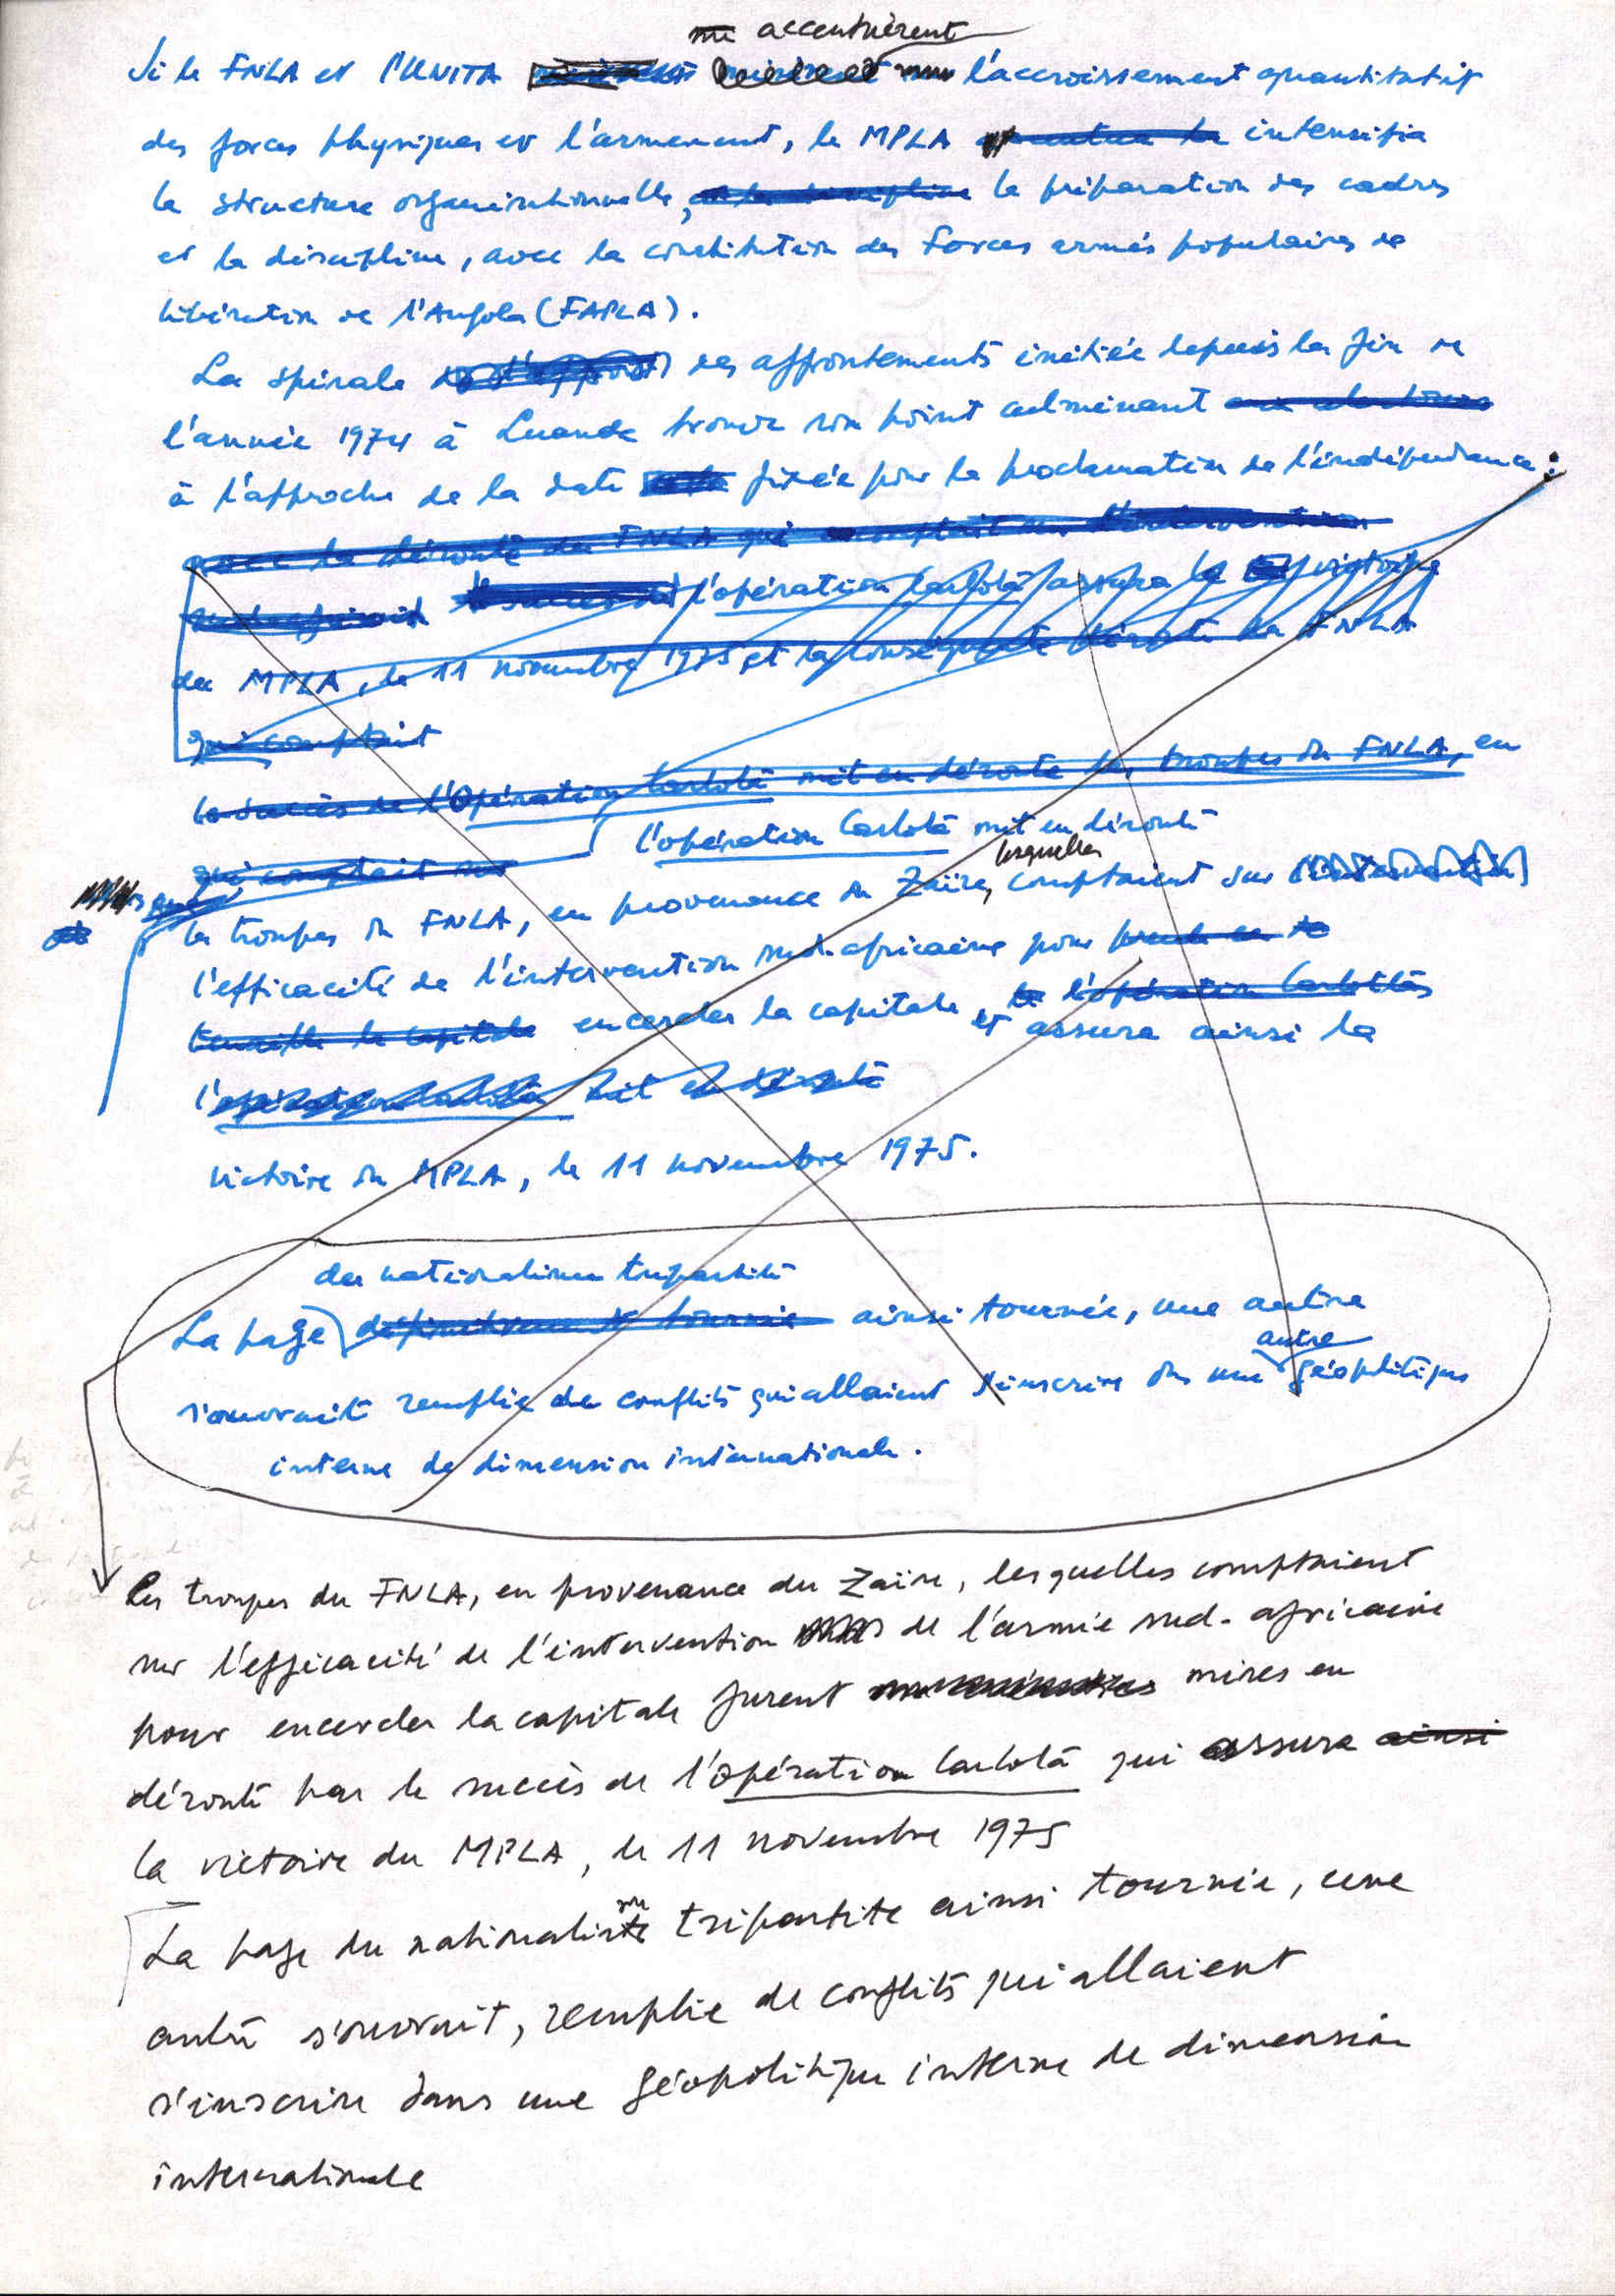 accentuèrent
Si le FNLA et l'UNITA l'accroissement quantitatif
des forces physiques et l'armement, le MPLA intensifia
la structure organisationnelle, la préparation des cadres
et la discipline, avec la constitution des Forces armés populaires de
libération de l'Angola (FAPLA).
La spirale des affrontements initiée depuis la fin de
l'année 1974 à Luanda trouva son point culminant
à l'approche de la date fixée pour la proclamation de l'indépendance :
avec la déroute du FNLA qui comptait sur l'intervention
sud-africaine l'opération Carlota assura la victoire
du MPLA, le 11 novembre 1975 et la conséquente déroute du FNLA
qui comptait
le succès de l'Opération Carlota mit en déroute les troupes du FNLA, en
qui comptait sur l'opération Carlota mit en déroute
lesquelles
les troupes du FNLA, en provenance du Zaïre, comptaient sur l'intervention
l'efficacité de l'intervention sud-africaine pour prendre en
tenaille la capitale encercler la capitale, et l'opération Carlota
assura ainsi la
l'opération Carlota mit en déroute
victoire du MPLA, le 11 novembre 1975.
du nationalisme tripartite
La page définitivement tournée ainsi tournée, une autre
autre
s'ouvrait remplie de conflits qui allaient s'inscrire ds une géopolitique
interne de dimension internationale.
Les troupes du FNLA, en provenance du Zaïre, lesquelles comptaient
sur l'efficacité de l'intervention de l'armée sud-africaine
pour encercler la capitale furent mises en
déroute par le succès de l'opération Carlota qui assura ainsi
la victoire du MPLA, le 11 novembre 1975
La page du nationalisme tripartite ainsi tournée, une
autre s'ouvrait, remplie de conflits qui allaient
s'inscrire dans une géopolitique interne de dimension
internationale